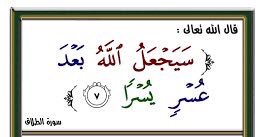 قال الله تعالى :
سَيَجْعَلُ ٱللَّهُ بَعْدَ
عُسْرٍ يُسْرًا ٧
سورة الطلاق